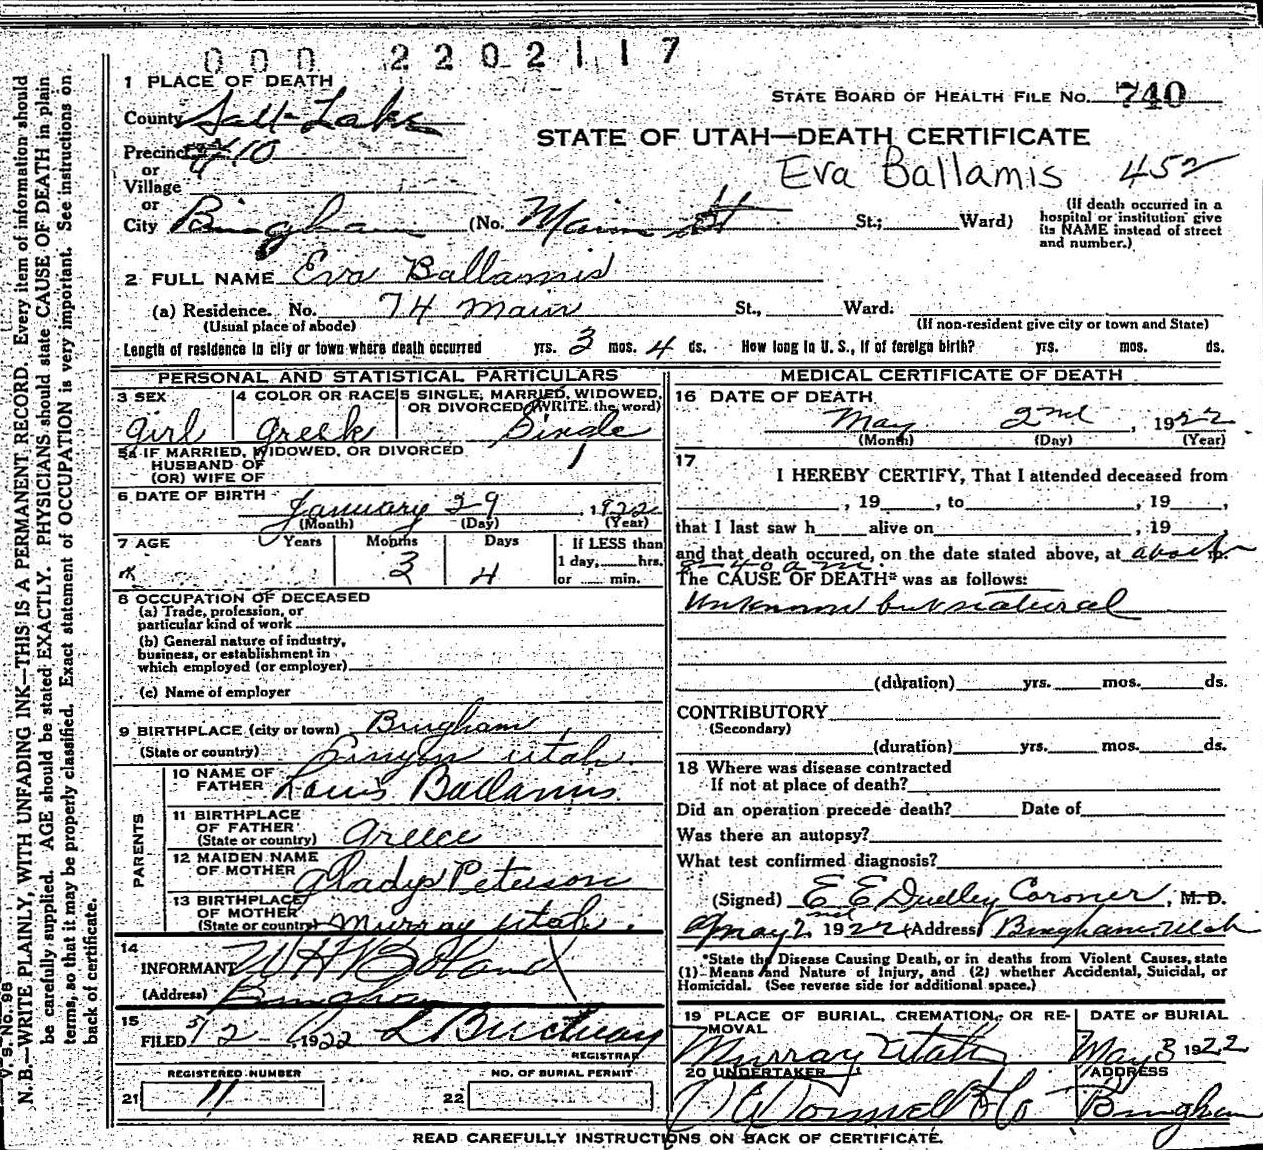 000 2202117
1 PLACE OF DEATH
STATE BOARD OF HEALTH FILE NO. 740
County Salt Lake
STATE OF UTAH—DEATH CERTIFICATE
Precinct #10
or
Village
Eva Ballamis 452
or
City Bingham (No. Main St St.; Ward)
(If death occurred in a hospital or institution give its NAME instead of street and number.)
2 FULL NAME Eva Ballamis
(a) Residence. No. 74 Main St., Ward.
(Usual place of abode) (If non-resident give city or town and State)
Length of residence in city or town where death occurred yrs. 3 mos. 4 ds. How long in U. S., if of foreign birth? yrs. mos. ds.
PERSONAL AND STATISTICAL PARTICULARS
3 SEX 4 COLOR OR RACE 5 SINGLE, MARRIED, WIDOWED,
OR DIVORCED (WRITE the word)
girl greek Single
5a IF MARRIED, WIDOWED, OR DIVORCED
HUSBAND OF
(OR) WIFE OF
6 DATE OF BIRTH January 29, 1922
(Month) (Day) (Year)
7 AGE Years Months Days If LESS than
1 day, hrs.
3 4 or min.
8 OCCUPATION OF DECEASED
(a) Trade, profession, or
particular kind of work
(b) General nature of industry,
business, or establishment in
which employed (or employer)
(c) Name of employer
9 BIRTHPLACE (city or town) Bingham
(State or country) Canyon Utah.
PARENTS
10 NAME OF
FATHER Louis Ballamis
11 BIRTHPLACE
OF FATHER
(State or country) Greece
12 MAIDEN NAME
OF MOTHER Gladys Peterson
13 BIRTHPLACE
OF MOTHER
(State or country) Murray Utah.
14
INFORMANT W H Boland
(Address) Bingham
15
FILED 5/2 - 1922
REGISTRAR
REGISTERED NUMBER NO. OF BURIAL PERMIT
21 11 22
MEDICAL CERTIFICATE OF DEATH
16 DATE OF DEATH
May 2nd, 1922
(Month) (Day) (Year)
17
I HEREBY CERTIFY, That I attended deceased from
, 19 , to , 19 ,
that I last saw h alive on , 19 ,
and that death occured, on the date stated above, at about m.
8-40 a m.
The CAUSE OF DEATH* was as follows:
Unknown but natural
(duration) yrs. mos. ds.
CONTRIBUTORY
(Secondary)
(duration) yrs. mos. ds.
18 Where was disease contracted
If not at place of death?
Did an operation precede death? Date of
Was there an autopsy?
What test confirmed diagnosis?
(Signed) E E Dudley Coroner, M. D.
May 2nd 1922 (Address) Bingham Utah
*State the Disease Causing Death, or in deaths from Violent Causes, state
(1) Means and Nature of Injury, and (2) whether Accidental, Suicidal, or
Homicidal. (See reverse side for additional space.)
19 PLACE OF BURIAL, CREMATION, OR RE-
MOVAL
DATE OF BURIAL
Murray Utah May 3 1922
20 UNDERTAKER ADDRESS
O'Donnell & Co Bingham
READ CAREFULLY INSTRUCTIONS ON BACK OF CERTIFICATE.
V. S. No. 98
N. B.—WRITE PLAINLY, WITH UNFADING INK—THIS IS A PERMANENT RECORD. Every item of information should
be carefully supplied. AGE should be stated EXACTLY. PHYSICIANS should state CAUSE OF DEATH in plain
terms, so that it may be properly classified. Exact statement of OCCUPATION is very important. See instructions on
back of certificate.